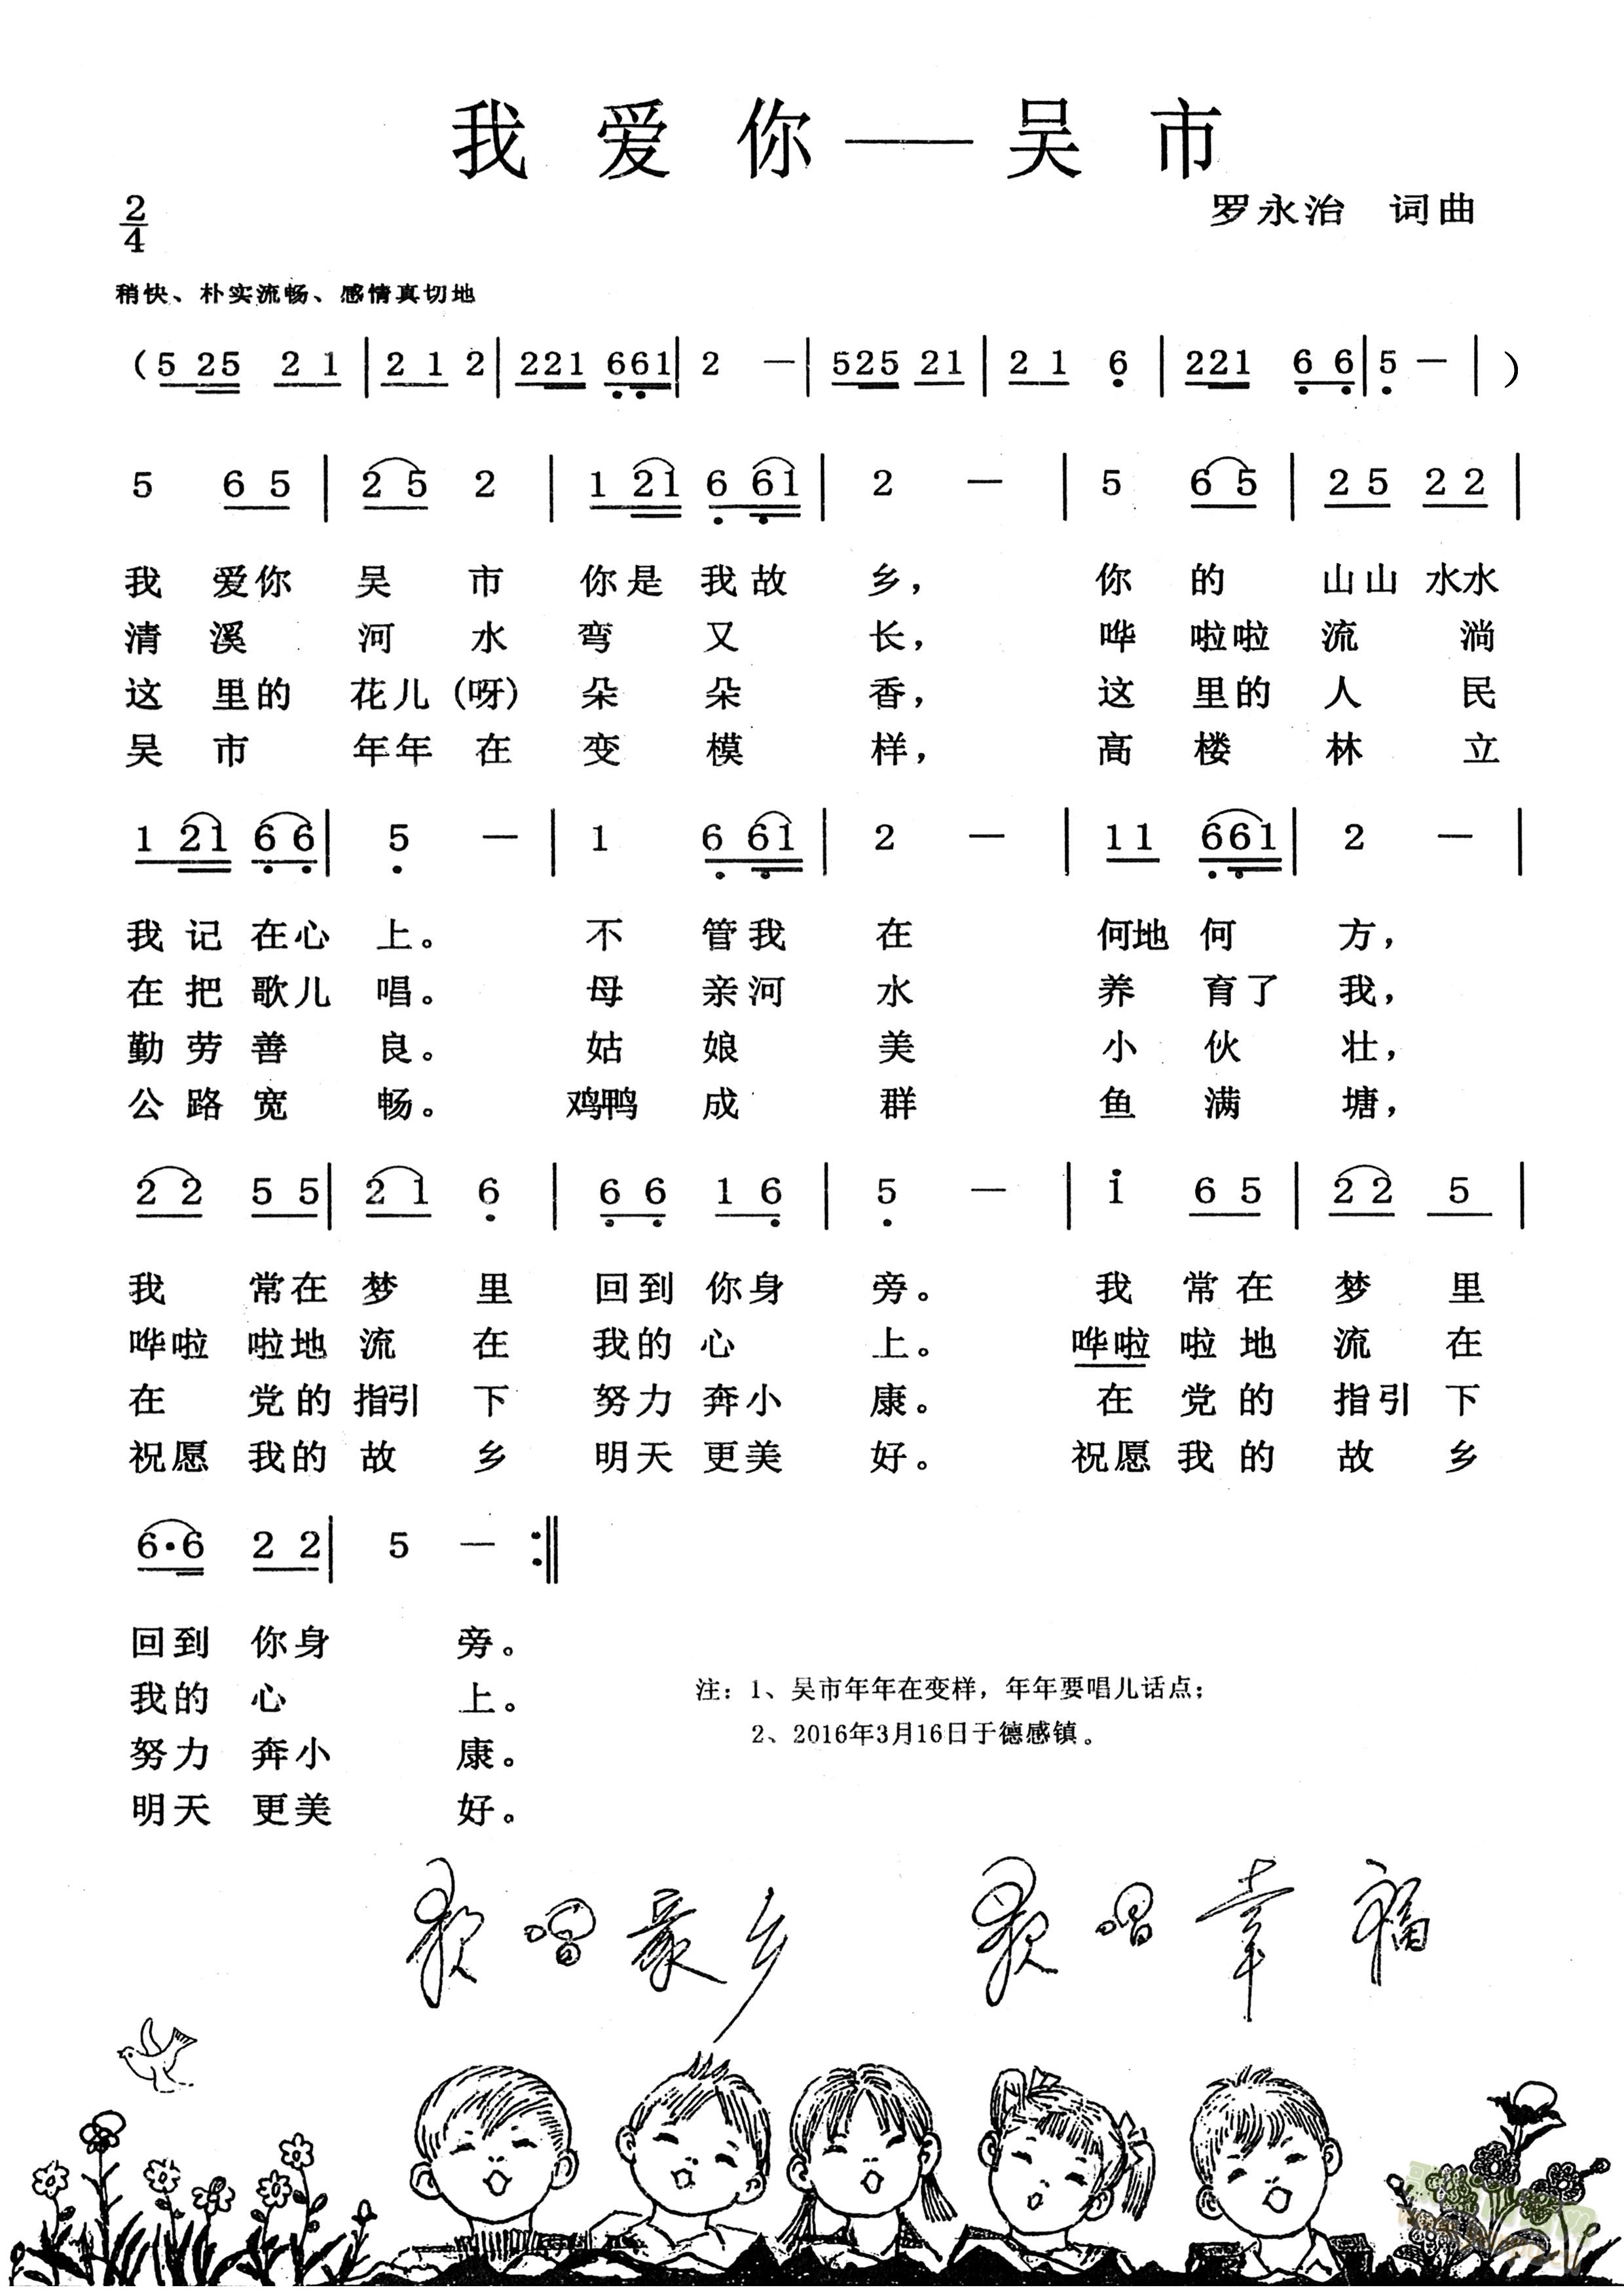 我爱你——吴市
2/4
罗永治 词曲
稍快、朴实流畅、感情真切地
( 5 25 2 1 | 2 1 2 | 221 661 | 2 — | 525 21 | 2 1 6 | 221 6 6 | 5 — | )
5 6 5 | 2 5 2 | 1 21 6 61 | 2 — | 5 6 5 | 2 5 2 2 |
我 爱你 吴 市 你是 我故 乡, 你 的 山山 水水
清 溪 河 水 弯 又 长, 哗 啦啦 流 淌
这 里的 花儿 (呀) 朵 朵 香, 这 里的 人 民
吴 市 年年 在 变 模 样, 高 楼 林 立
1 21 6 6 | 5 — | 1 6 61 | 2 — | 11 661 | 2 — |
我 记 在心 上。 不 管我 在 何地 何 方,
在 把 歌儿 唱。 母 亲河 水 养 育了 我,
勤 劳 善 良。 姑 娘 美 小 伙 壮,
公 路 宽 畅。 鸡鸭 成 群 鱼 满 塘,
2 2 5 5 | 2 1 6 | 6 6 1 6 | 5 — | i 6 5 | 2 2 5 |
我 常在 梦 里 回到 你身 旁。 我 常在 梦 里
哗啦 啦地 流 在 我的 心 上。 哗啦 啦地 流 在
在 党的 指引 下 努力 奔小 康。 在 党的 指引 下
祝愿 我的 故 乡 明天 更美 好。 祝愿 我的 故 乡
6·6 2 2 | 5 — :‖
回到 你身 旁。
我的 心 上。
努力 奔小 康。
明天 更美 好。
注：1、吴市年年在变样，年年要唱儿话点；
2、2016年3月16日于德感镇。
歌唱家乡 歌唱幸福